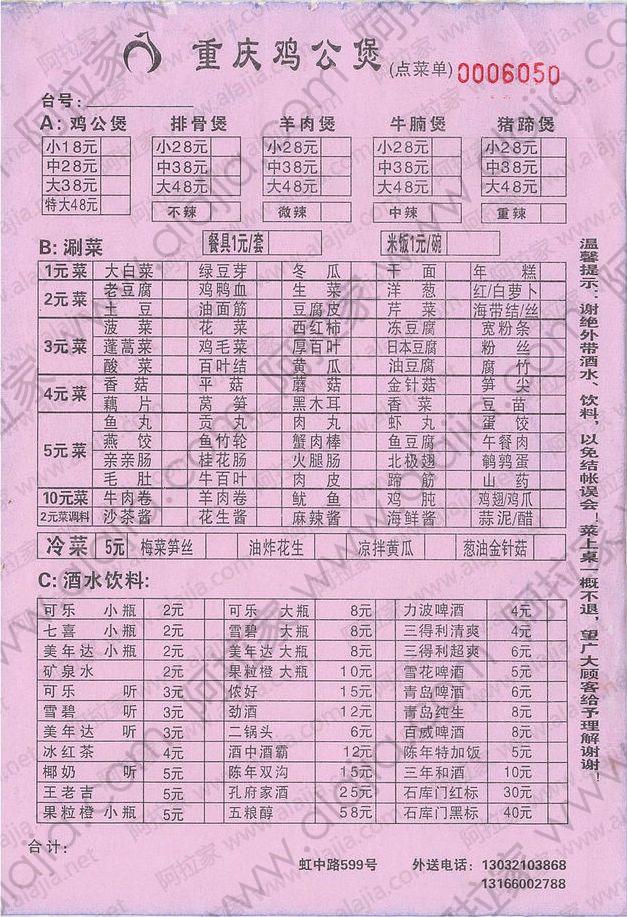 重庆鸡公煲(点菜单) 0006050
台号:
A: 鸡公煲 排骨煲 羊肉煲 牛腩煲 猪蹄煲
小18元 小28元 小28元 小28元 小28元
中28元 中38元 中38元 中38元 中38元
大38元 大48元 大48元 大48元 大48元
特大48元 不辣 微辣 中辣 重辣
B: 涮菜 餐具1元/套 米饭1元/碗
1元菜 大白菜 绿豆芽 冬瓜 干面 年糕
2元菜 老豆腐 鸡鸭血 生菜 洋葱 红/白萝卜
土豆 油面筋 豆腐皮 芹菜 海带结/丝
3元菜 菠菜 花菜 西红柿 冻豆腐 宽粉条
蓬蒿菜 鸡毛菜 厚百叶 日本豆腐 粉丝
酸菜 百叶结 黄瓜 油豆腐 腐竹
4元菜 香菇 平菇 蘑菇 金针菇 笋尖
藕片 莴笋 黑木耳 香菜 豆苗
5元菜 鱼丸 贡丸 肉丸 虾丸 蛋饺
燕饺 鱼竹轮 蟹肉棒 鱼豆腐 午餐肉
亲亲肠 桂花肠 火腿肠 北极翅 鹌鹑蛋
毛肚 牛百叶 肉皮 蹄筋 山药
10元菜 牛肉卷 羊肉卷 鱿鱼 鸡肫 鸡翅/鸡爪
2元菜调料 沙茶酱 花生酱 麻辣酱 海鲜酱 蒜泥/醋
冷菜 5元 梅菜笋丝 油炸花生 凉拌黄瓜 葱油金针菇
C: 酒水饮料:
可乐 小瓶 2元 可乐 大瓶 8元 力波啤酒 4元
七喜 小瓶 2元 雪碧 大瓶 8元 三得利清爽 4元
美年达 小瓶 2元 美年达 大瓶 8元 三得利超爽 6元
矿泉水 2元 果粒橙 大瓶 10元 雪花啤酒 5元
可乐 听 3元 侬好 15元 青岛啤酒 6元
雪碧 听 3元 劲酒 12元 青岛纯生 8元
美年达 听 3元 二锅头 6元 百威啤酒 8元
冰红茶 4元 酒中酒霸 12元 陈年特加饭 5元
椰奶 听 5元 陈年双沟 15元 三年和酒 10元
王老吉 5元 孔府家酒 25元 石库门红标 30元
果粒橙 小瓶 5元 五粮醇 58元 石库门黑标 40元
合计:
虹中路599号 外送电话: 13032103868
13166002788
温馨提示:谢绝外带酒水、饮料,以免结帐误会!菜上桌一概不退,望广大顾客给予理解谢谢!
阿拉家 www.alajia.com
阿拉家 www.alajia.net